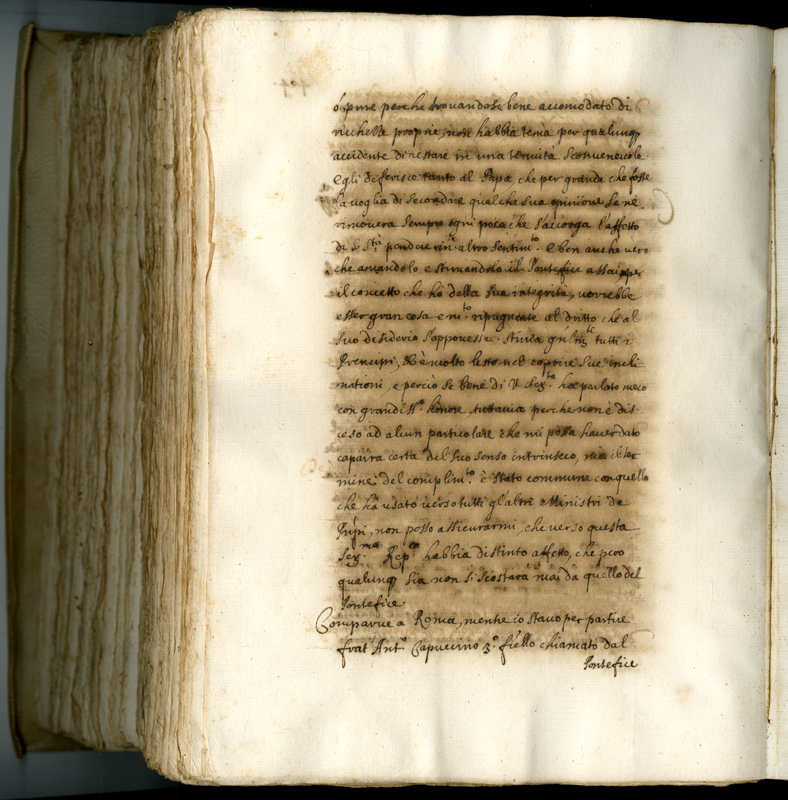 ó pure perche trouandosi bene accomodato di
richezze proprie, non habbia tema per qualunq
accidente di restare in una tenuità sconueneuole
Egli deferisce tanto al Papa che per grande che fosse
la uoglia di secondare qualche sua opinione se ne
rimouera sempre ogni poca che s'accorga l'affetto
di S. Stà pendere in altro sentim.to E ben anche uero
che amandolo e stimandolo il Pontefice assai per
il concetto che hà della sua integrità, uorrebbe
esser gran cosa e m.to ripugnante al dritto che al
suo desiderio s'opponesse. Stima tutti i
Prencipi, et è molto lesto nel coprire sue incli
nationi, e perciò se bene di V. Ser.tà ha parlato meco
con grandiss.o honore, tuttauia perche non è dis-
ceso ad alcun particolare che mi possa hauer dato
caparra certa del suo senso intrinseco, ma il ter
mine del complim.to è stato commune con quello
che hà usato uerso tutti gl'altri Ministri de
Prìpi, non posso assicurarmi, che uerso questa
Ser.ma Rep.ca habbia distinto affetto, che però
qualunq sia non si scostarà mai da quello del
Pontefice
Comparue a Roma, mentre io stauo per partire
frat' Ant.o Capuccino 3.o fr̃ello chiamato dal
Pontefice